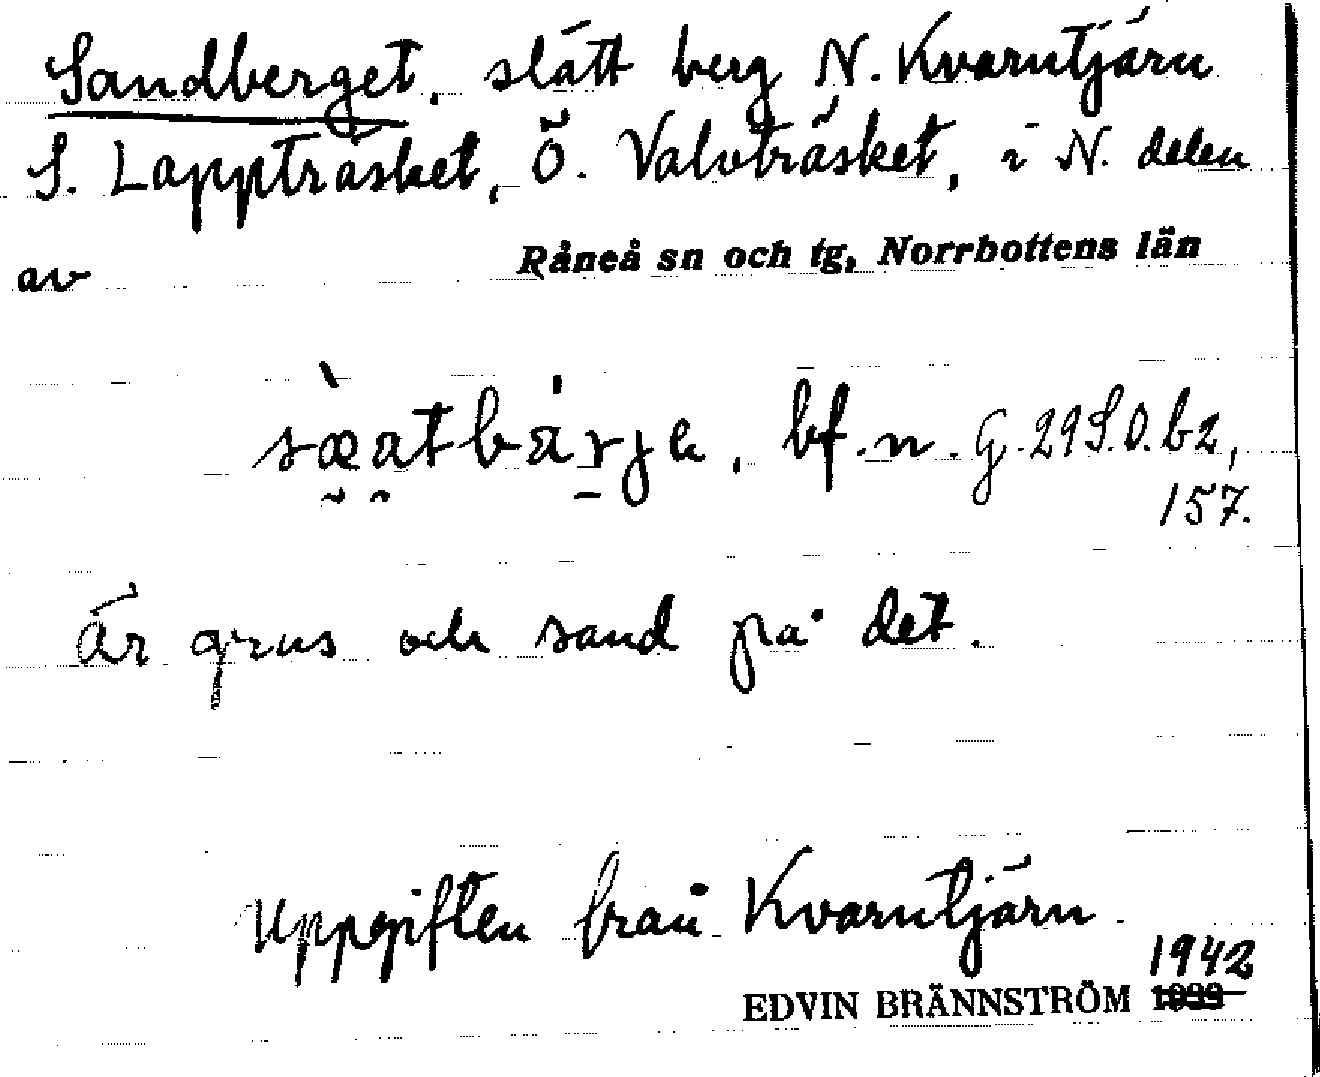 Sandberget, slätt berg N. Kvarntjärn
S. Lappträsket, Ö. Valvträsket, i N. delen
av Råneå sn och tg, Norrbottens län
bf. n. G. 29 S.O. b2,
157.
Är grus och sand på det.
Uppgiften från Kvarntjärn.
1942
EDVIN BRÄNNSTRÖM 1939